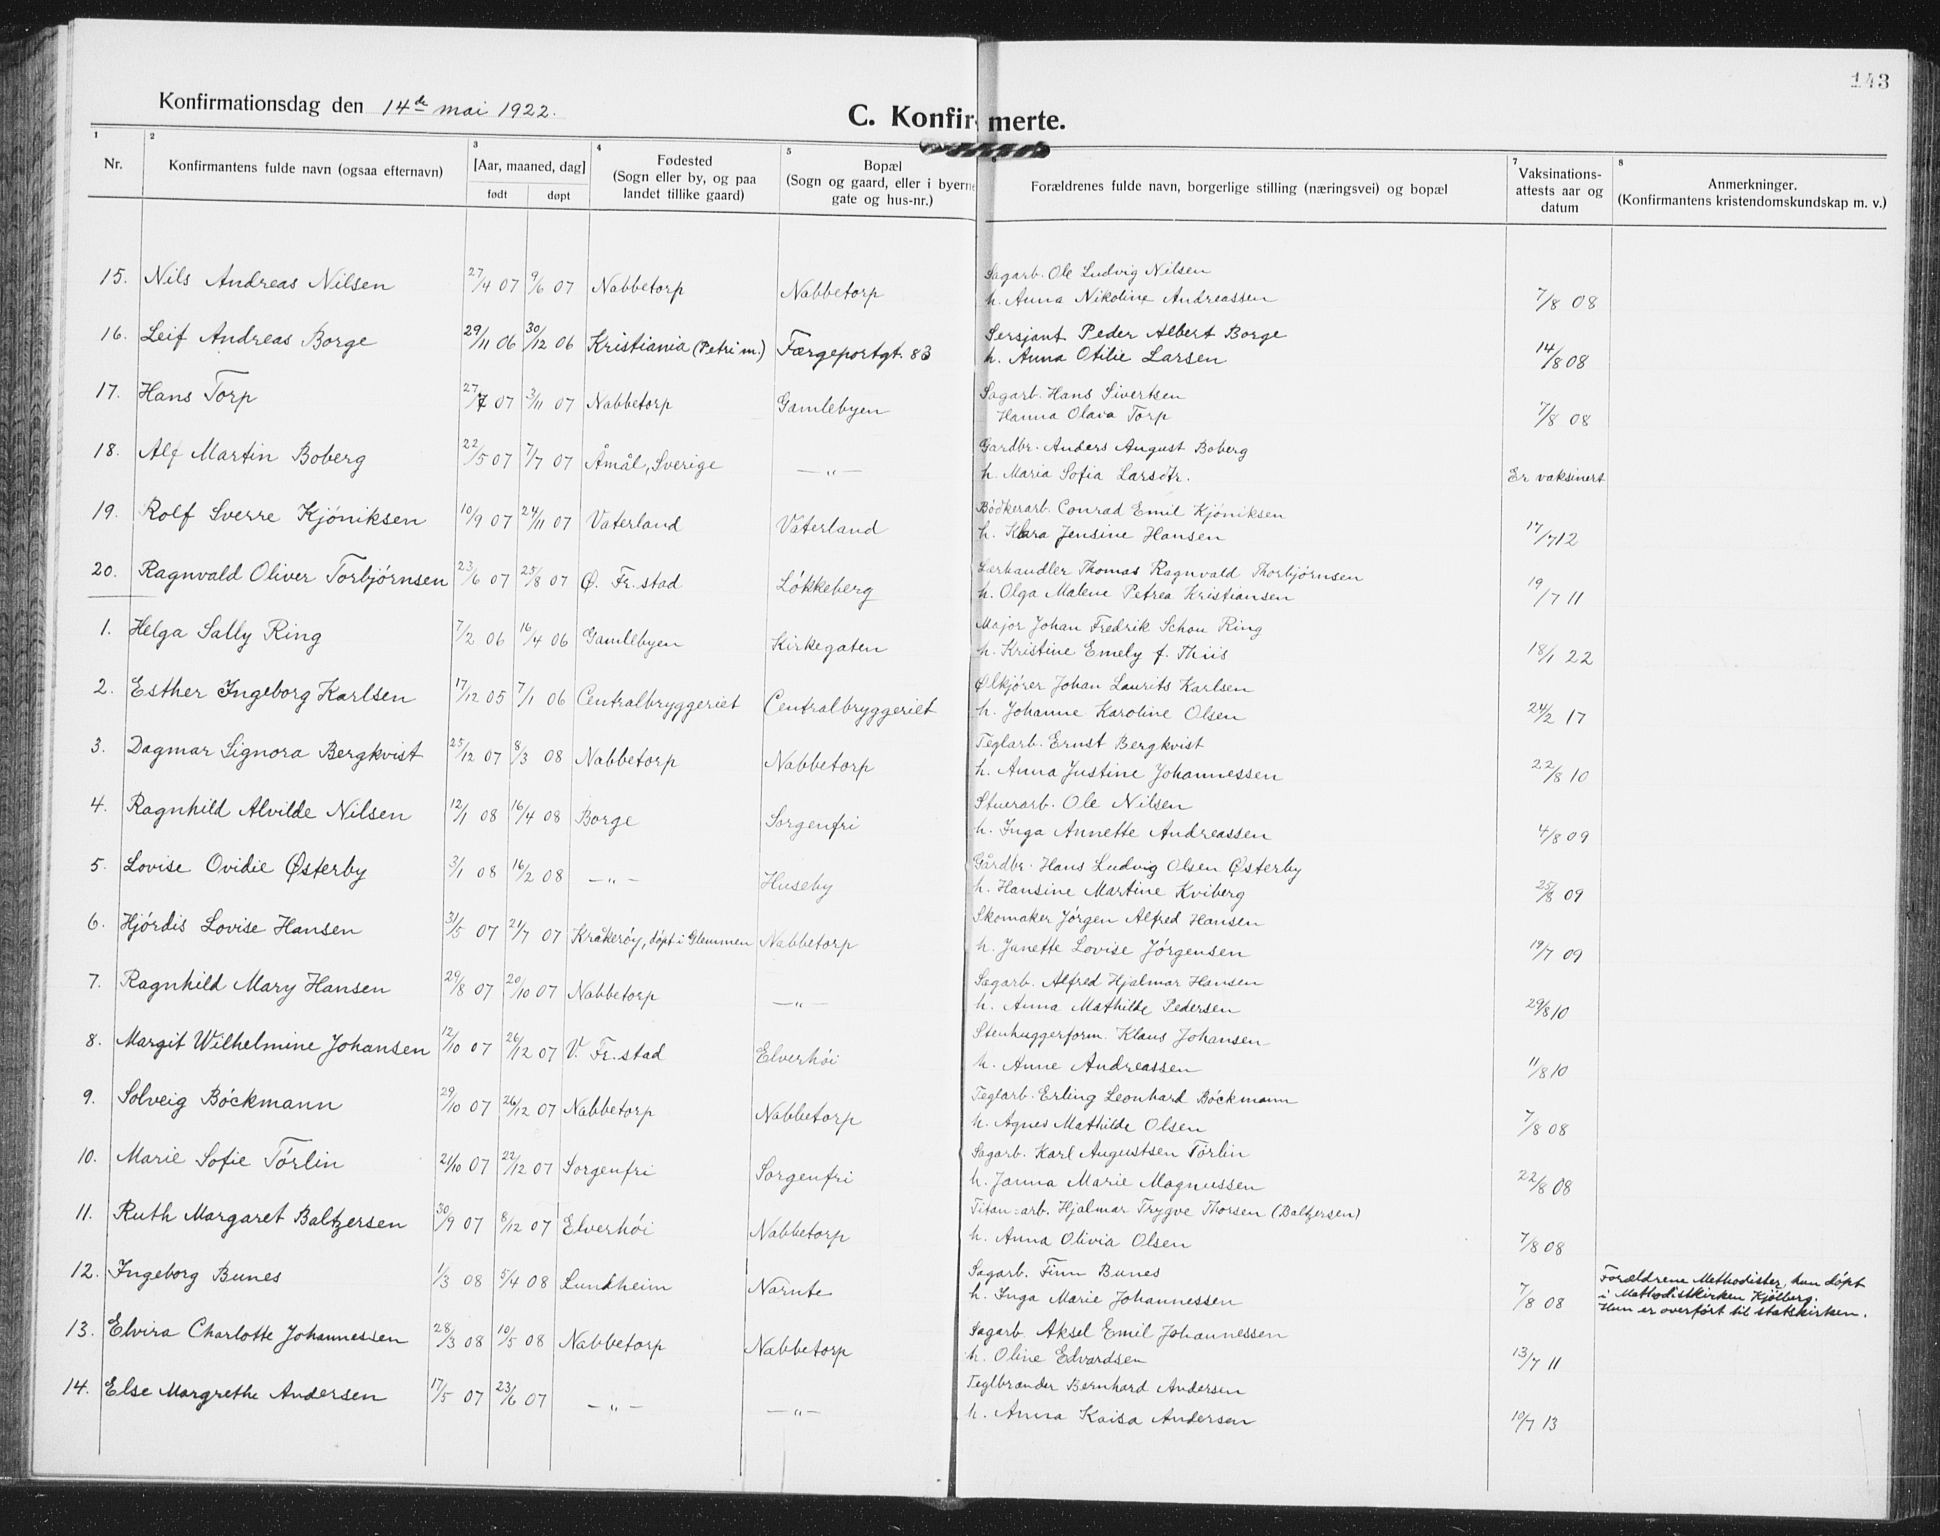 143
Konfirmationsdag den 14de mai 1922.
C. Konfirmerte.
1 2 3 4 5 7 8
Nr. Konfirmantens fulde navn (ogsaa efternavn) [Aar, maaned, dag] født døpt Fødested (Sogn eller by, og paa landet tillike gaard) Bopæl (Sogn og gaard, eller i byerne gate og hus-nr.) Forældrenes fulde navn, borgerlige stilling (næringsvei) og bopæl Vaksinations-attests aar og datum Anmerkninger. (Konfirmantens kristendomskundskap m. v.)
15. Nils Andreas Nilsen 27/4 07 9/6 07 Nabbetorp Nabbetorp Sagarb. Ole Ludvig Nilsen
h. Anna Nikoline Andreassen 7/8 08
16. Leif Andreas Borge 29/11 06 30/12 06 Kristiania (Petri m.) Færgeportgt. 83 Sersjant Peder Albert Borge
h. Anna Otilie Larsen 14/8 08
17. Hans Torp 27/7 07 3/11 07 Nabbetorp Gamlebyen Sagarb. Hans Sivertsen
Hanna Olava Torp 7/8 08
18. Alf Martin Boberg 22/5 07 7/7 07 Åmål, Sverige —"— Gardbr. Anders August Boberg
h. Maria Sofia Larsdtr. Er vaksinert
19. Rolf Sverre Kjóniksen 10/9 07 24/11 07 Vaterland Vaterland Bódkerarb. Conrad Emil Kjóniksen
h. Klara Jensine Hansen 17/7 12
20. Ragnvald Oliver Torbjørnsen 23/6 07 25/8 07 Ø. Fr.stad Lókkeberg Lærhandler Thomas Ragnvald Thorbjørnsen
h. Olga Malene Petrea Kristiansen 19/7 11
1. Helga Sally Ring 7/2 06 16/4 06 Gamlebyen Kirkegaten Major Johan Fredrik Schou Ring
h. Kristine Emely f. Thiis 18/1 22
2. Esther Ingeborg Karlsen 17/12 05 7/1 06 Centralbryggeriet Centralbryggeriet Ølkjórer Johan Laurits Karlsen
h. Johanne Karoline Olsen 24/2 17
3. Dagmar Signora Bergkvist 25/12 07 8/3 08 Nabbetorp Nabbetorp Teglarb. Ernst Bergkvist
h. Anna Justine Johannessen 22/8 10
4. Ragnhild Alvilde Nilsen 12/1 08 16/4 08 Borge Sorgenfri Stuerarb. Ole Nilsen
h. Inga Annette Andreassen 4/8 09
5. Lovise Ovidie Østerby 3/1 08 16/2 08 —"— Huseby Gårdbr. Hans Ludvig Olsen Østerby
h. Hansine Martine Kviberg 25/8 09
6. Hjórdis Lovise Hansen 31/5 07 21/7 07 Kråkeróy, dópt i Glemmen Nabbetorp Skomaker Jørgen Alfred Hansen
h. Janette Lovise Jørgensen 19/7 09
7. Ragnhild Mary Hansen 29/8 07 20/10 07 Nabbetorp —"— Sagarb. Alfred Hjalmar Hansen
h. Anna Mathilde Pedersen 29/8 10
8. Margit Wilhelmine Johansen 12/10 07 26/12 07 V. Fr.stad Elverhói Stenhuggerform. Klaus Johansen
h. Anne Andreassen 11/8 10
9. Solveig Bóckmann 29/10 07 26/12 07 Nabbetorp Nabbetorp Teglarb. Erling Leonhard Bóckmann
h. Agnes Mathilde Olsen 7/8 08
10. Marie Sofie Tórlin 21/10 07 22/12 07 Sorgenfri Sorgenfri Sagarb. Karl Augustsen Tórlin
h. Janna Marie Magnussen 22/8 08
11. Ruth Margaret Baltzersen 30/9 07 8/12 07 Elverhói Nabbetorp Titan-arb. Hjalmar Trygve Thorsen (Baltzersen)
h. Anna Olivia Olsen 7/8 08
12. Ingeborg Bunes 1/3 08 5/4 08 Lundheim Narnte Sagarb. Finn Bunes
h. Inga Marie Johannessen 7/8 08 Forældrene Methodister, hun dópt
i Methodistkirken Kjólberg.
Hun er overfórt til statskirken.
13. Elvira Charlotte Johannessen 28/3 08 10/5 08 Nabbetorp Nabbetorp Sagarb. Aksel Emil Johannessen
h. Oline Edvardsen 13/7 11
14. Else Margrethe Andersen 17/5 07 23/6 07 —"— —"— Teglbrænder Bernhard Andersen
h. Anna Kaisa Andersen 10/7 13